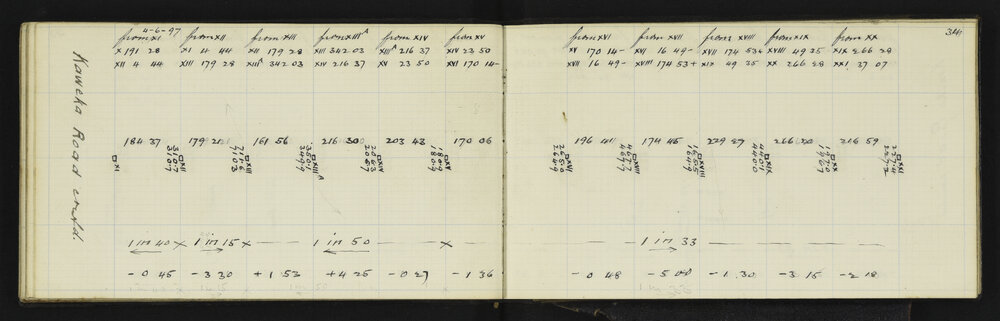 4-6-97
34
Kaweka Road contd.
from XI from XII from XIII from XIIIA from XIV from XV from XVI from XVII from XVIII from XIX from XX
X 191 28 XI 4 44 XII 179 28 XIII 342 03 XIIIA 216 37 XIV 23 50 XV 170 14- XVI 16 49- XVII 174 53+ XVIII 49 25 XIX 266 28
XII 4 44 XIII 179 28 XIIIA 342 03 XIV 216 37 XV 23 50 XVI 170 14- XVII 16 49- XVIII 174 53+ XIX 49 25 XX 266 28 XXI 37 07
184 37 179 161 56 216 30 203 43 170 06 196 41 174 45 229 27 266 20 216 59
XI XII XIII XIIIA XIV XV XVI XVII XVIII XIX XX XXI
1 in 40 x 1 in 15 x 1 in 50 x 1 in 33
-0 45 -3 30 +1 53 +4 25 -0 27 -1 36 -0 48 -5 00 -1 30 -3 15 -2 18